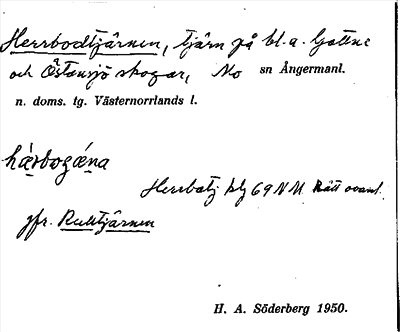 Herrbodtjärnen, tjärn på bl.a. Gottne
och Östansjö skogar, Mo sn Ångermanl.
n. doms. tg. Västernorrlands l.
Herrbotj blg 69 N M. Rätt ovanl.
jfr. Rulltjärnen
H. A. Söderberg 1950.